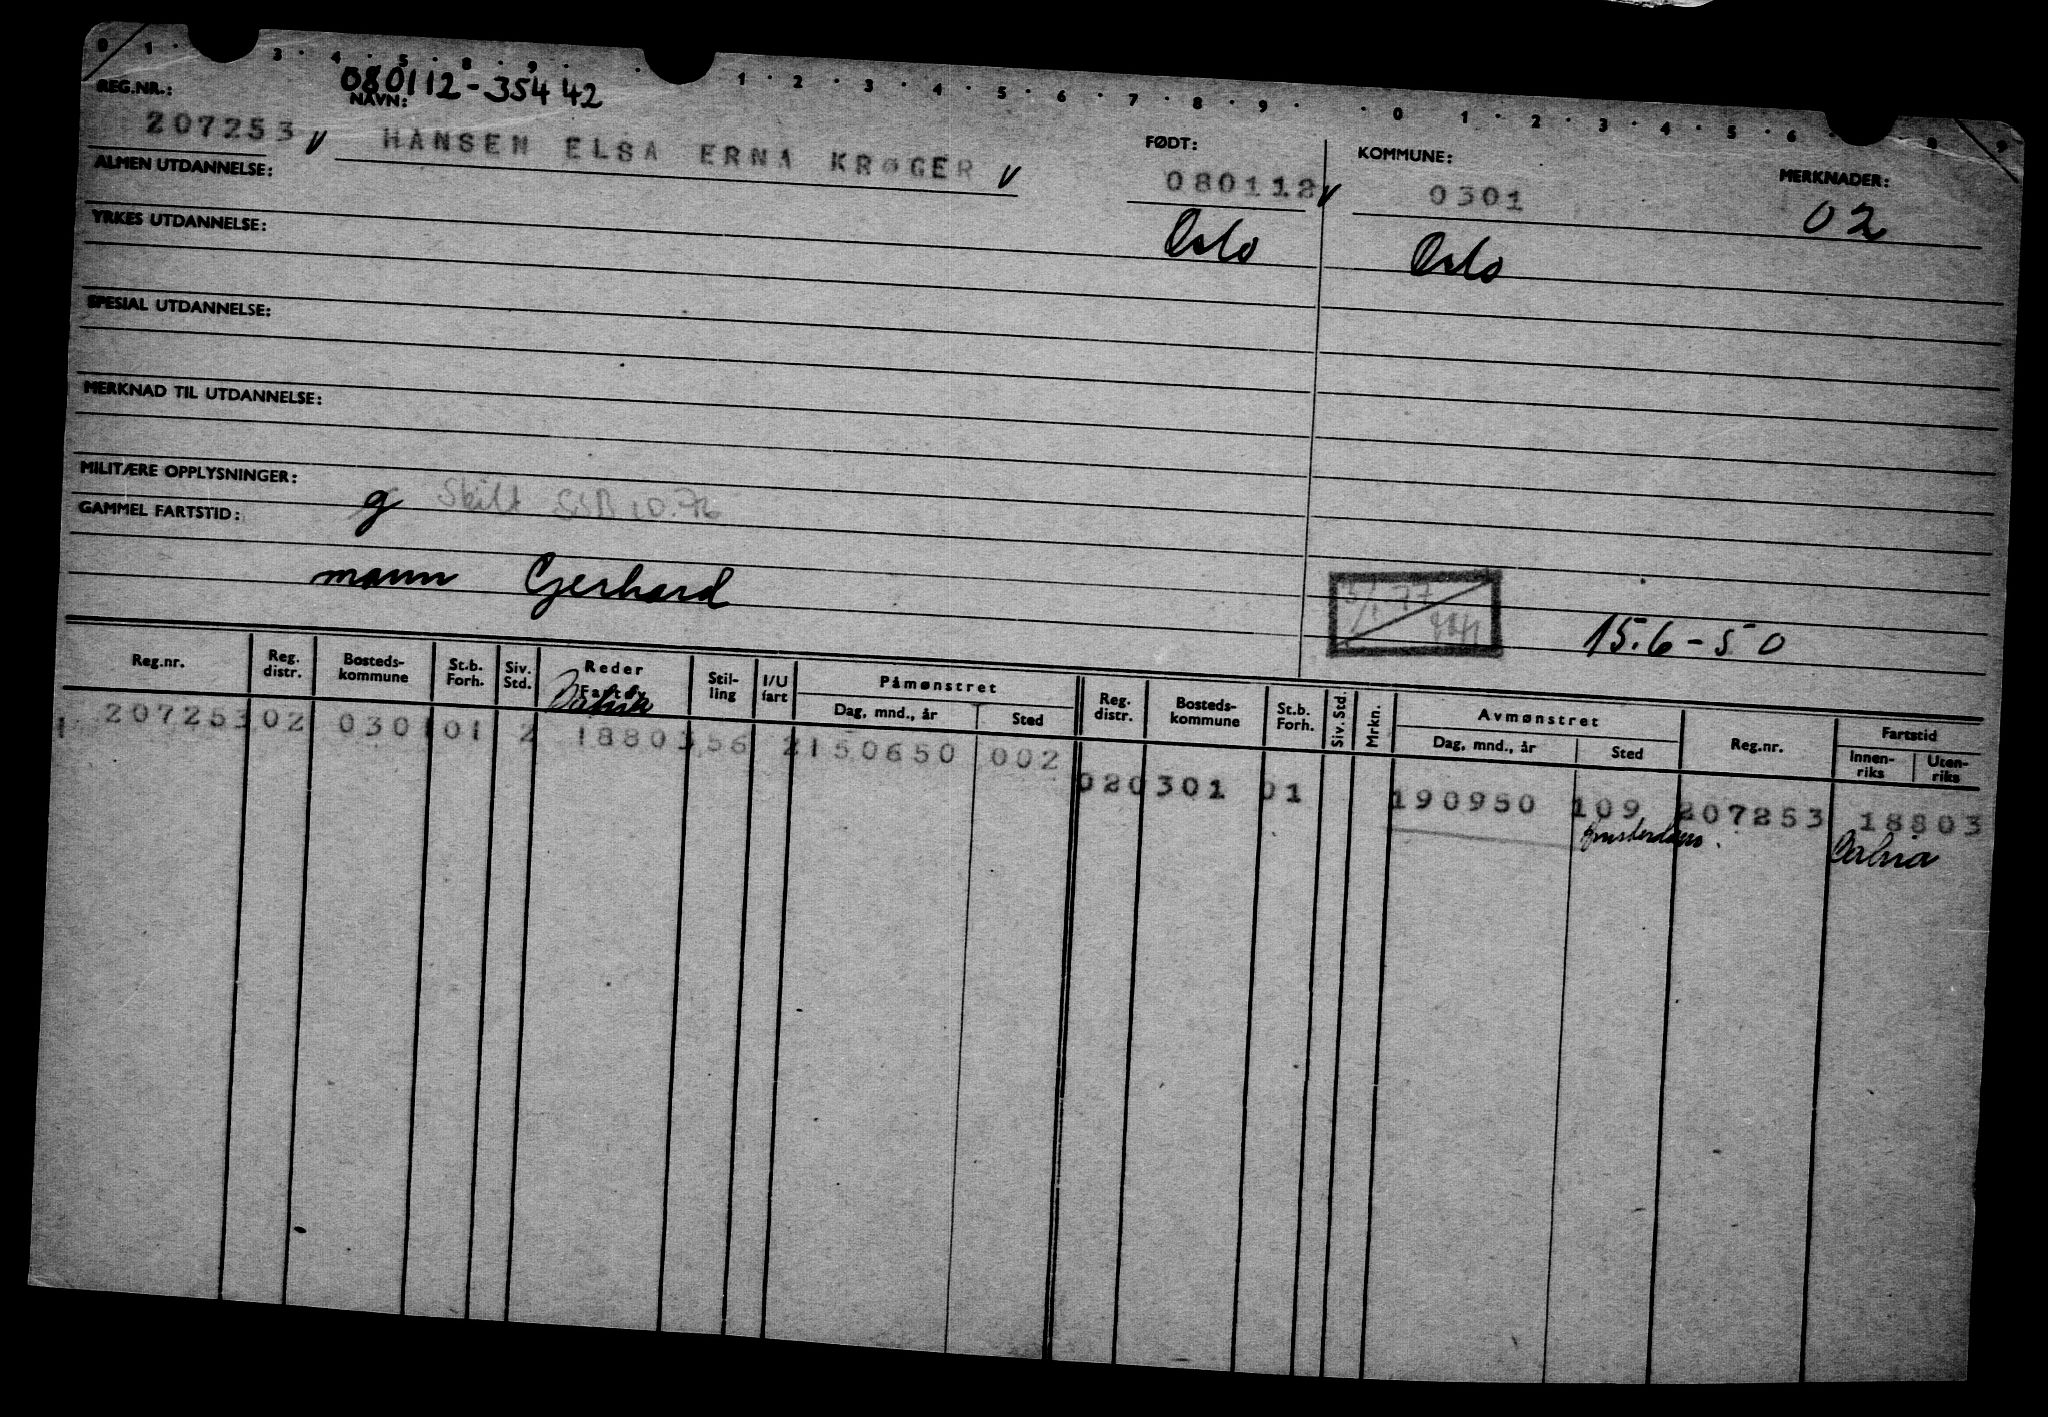 0 1 · 3 · 4 · 5 · 8 · 9 · · 1 · 2 · 3 · 4 · 5 · 6 · 7 · 8 · 9 · · 0 1 · 2 · 3 · 4 · 5 · 6 · 8 9
080112-35442
REG.NR.: NAVN: FØDT: KOMMUNE: MERKNADER:
207253 v HANSEN ELSA ERNA KRØGER v 080112 v 0301 02
ALMEN UTDANNELSE:
Oslo Oslo
YRKES UTDANNELSE:
SPESIAL UTDANNELSE:
MERKNAD TIL UTDANNELSE:
MILITÆRE OPPLYSNINGER:
g Skilt SSB 10.76
GAMMEL FARTSTID:
mann Gerhard
15.6-50
Reg.nr. Reg. distr. Bosteds-kommune St.b. Forh. Siv. Std. Reder Fartøy Stil-ling I/U fart Påmønstret Dag, mnd., år Sted Reg. distr. Bosteds-kommune St.b. Forh. Siv. Std. Mrkn. Avmønstret Dag, mnd., år Sted Reg.nr. Fartstid Innen-riks Uten-riks
1 207253 02 0301 01 2 18803 56 2 150650 002
02 0301 01 190950 109 207253 18803
Amsterdam.